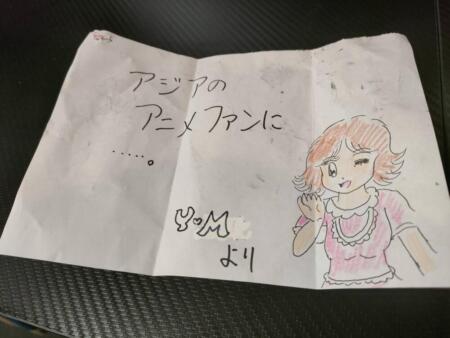 アジアの
アニメファンに
.....。
Y・M
より